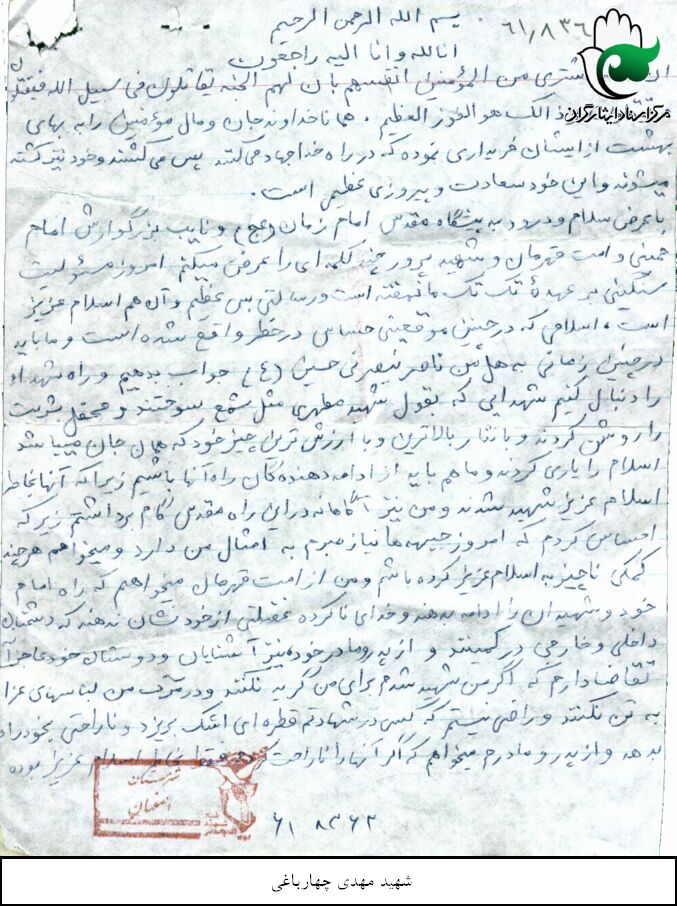 ۶۱,۸۳۶
بسم الله الرحمن الرحیم
انالله و انا الیه راجعون
مرکز اسناد ایثارگران
اشتری من المؤمنین انفسهم بان لهم الجنه یقاتلون فی سبیل الله فیقتلون
ذالک هو الفوز العظیم . همانا خداوند جان و مال مؤمنین را به بهای
بهشت از ایشان خریداری نموده که در راه خدا جهاد می‌کنند پس می‌کشند و خود نیز کشته
میشوند و این خود سعادت و پیروزی عظیم است .
با عرض سلام و درود به پیشگاه مقدس امام زمان (عج) و نایب بزرگوارش امام
خمینی و امت قهرمان و شهید پرور چند کلمه ای را عرض میکنم . امروز مسؤلیت
سنگینی بر عهدهٔ تک تک ما نهفته است و رسالتی بس عظیم و آن هم اسلام عزیز
است ، اسلامی که در چنین موقعیتی حساس در خطر واقع شده است و ما باید
در چنین زمانی به هل من ناصر ینصرنی حسین (ع) جواب بدهیم و راه شهداء
را دنبال کنیم شهدایی که بقول شهید مطهری مثل شمع سوختند و محفل بشریت
را روشن کردند و با نثار بالاترین و با ارزش ترین چیز خود که همان جان میباشد
اسلام را یاری کردند و ما هم باید از ادامه دهنده‌گان راه آنها باشیم زیرا که آنها بخاطر
اسلام عزیز شهید شدند و من نیز آگاهانه در این راه مقدس گام برداشتم زیرا که
احساس کردم که امروز جبهه ها نیاز مبرم به امثال من دارد و میخواهم هر چند
کمکی ناچیز به اسلام عزیز کرده باشم و من از امت قهرمان میخواهم که راه امام
خود و شهیدان را ادامه بدهند و خدای نا کرده غفلتی از خود نشان ندهند که دشمنان
داخلی و خارجی در کمینند و از پدر و مادر خود و نیز آشنایان و دوستان خود عاجزاً
تقاضا دارم که اگر من شهید شدم برای من گریه نکنند و در مرگ من لباسهای عزا
به تن نکنند و راضی نیستم که کسی در شهادتم قطره ای اشک بریزد و ناراحتی بخود راه
بدهد و از پدر و مادرم میخواهم که اگر آنها را ناراحت کرده فقط بخاطر اسلام عزیز بوده
شهرستان
اصفهان
۶۱ ۸۳۶۲
شهید مهدی چهارباغی